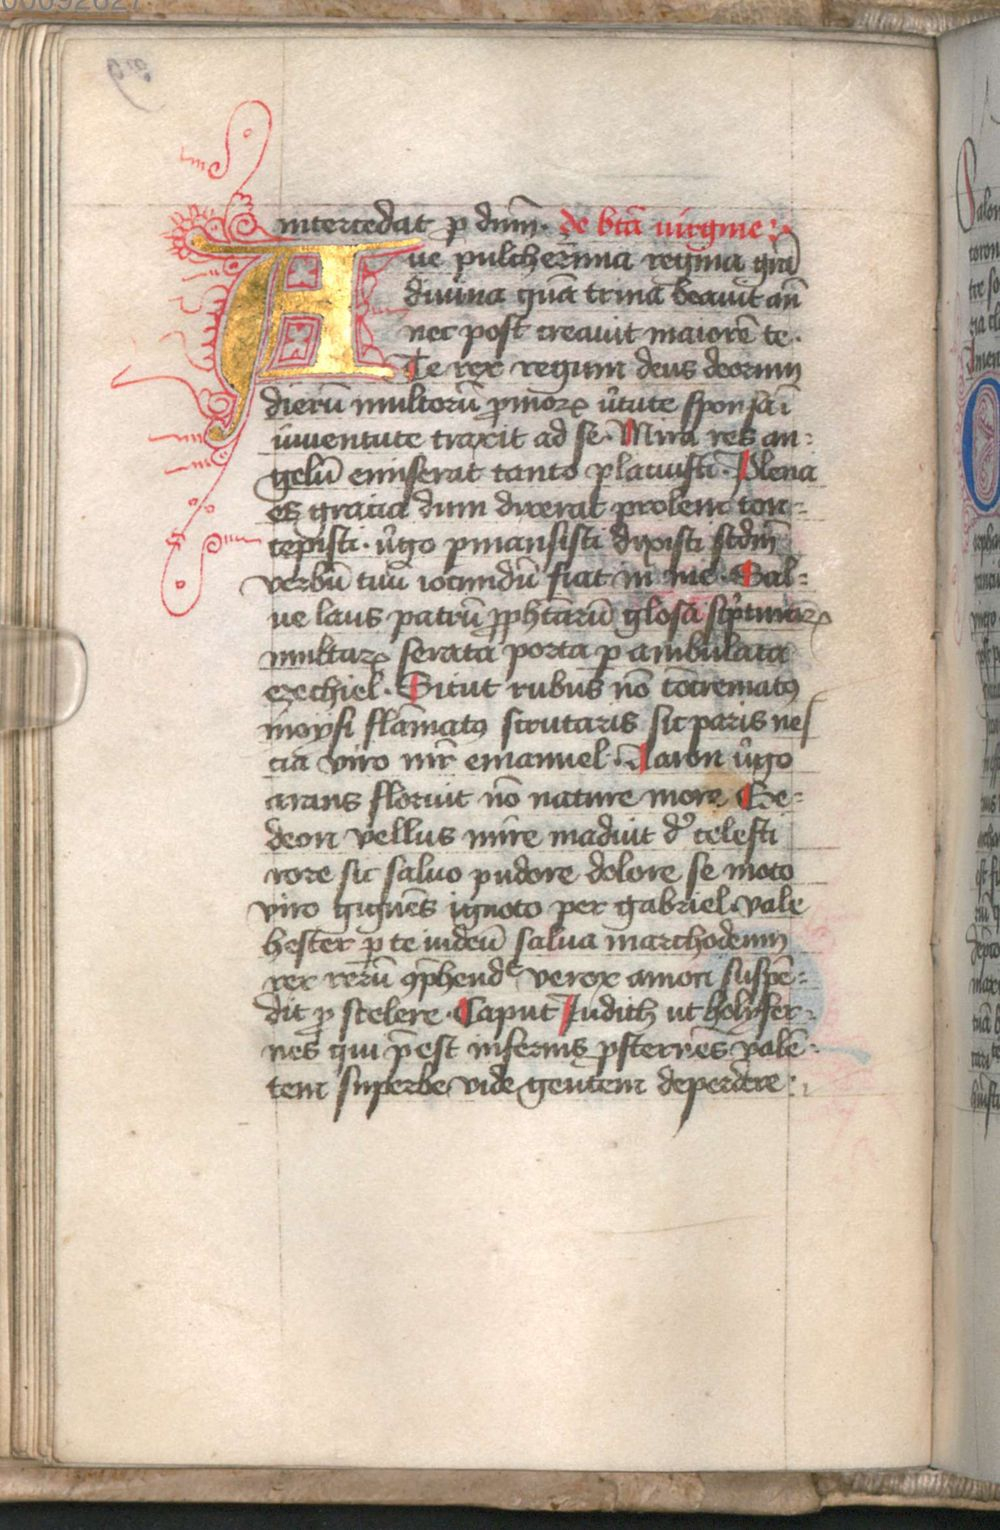 intercedat p dnm̄. de btā uirgine
Aue pulcherrima regina gr̄a
diuina quā trina beauit an̄
nec post creauit maiorē te.
Te rex regum deus deorum
dierū multorū pmorꝝ v̄tute sponsa i
iuuentute traxit ad se. Mira res an⸗
gelū emiserat tanto placuisti. Plena
es gracia dum dixerat prolem con⸗
cepisti. v̄go pmansisti dixisti scdm̄
verbū tuū iocundū fiat in me. Sal⸗
ue laus patrū ꝓphtarū glosa scpturarꝝ
multarꝝ serata porta p ambulata
ezechiel. Sicut rubus nō cōcrematꝯ
moysi flāmatꝯ scutaris sic paris nes
cia viro nr̄ emanuel. Aaron v̄go
arans floruit nō nature more Ge⸗
deon vellus mire maduit d' celesti
rore sic saluo pudore dolore se moto
viro gignēs ignoto per gabriel. vale
hester p te iudeū salua marchodeum
rex rerū ꝯphend verox amon suspē⸗
dit p scelere. Caput Judith ut holofer⸗
nes qui pēst infernis psternes valē⸗
tem superbe vide gentem deperdere